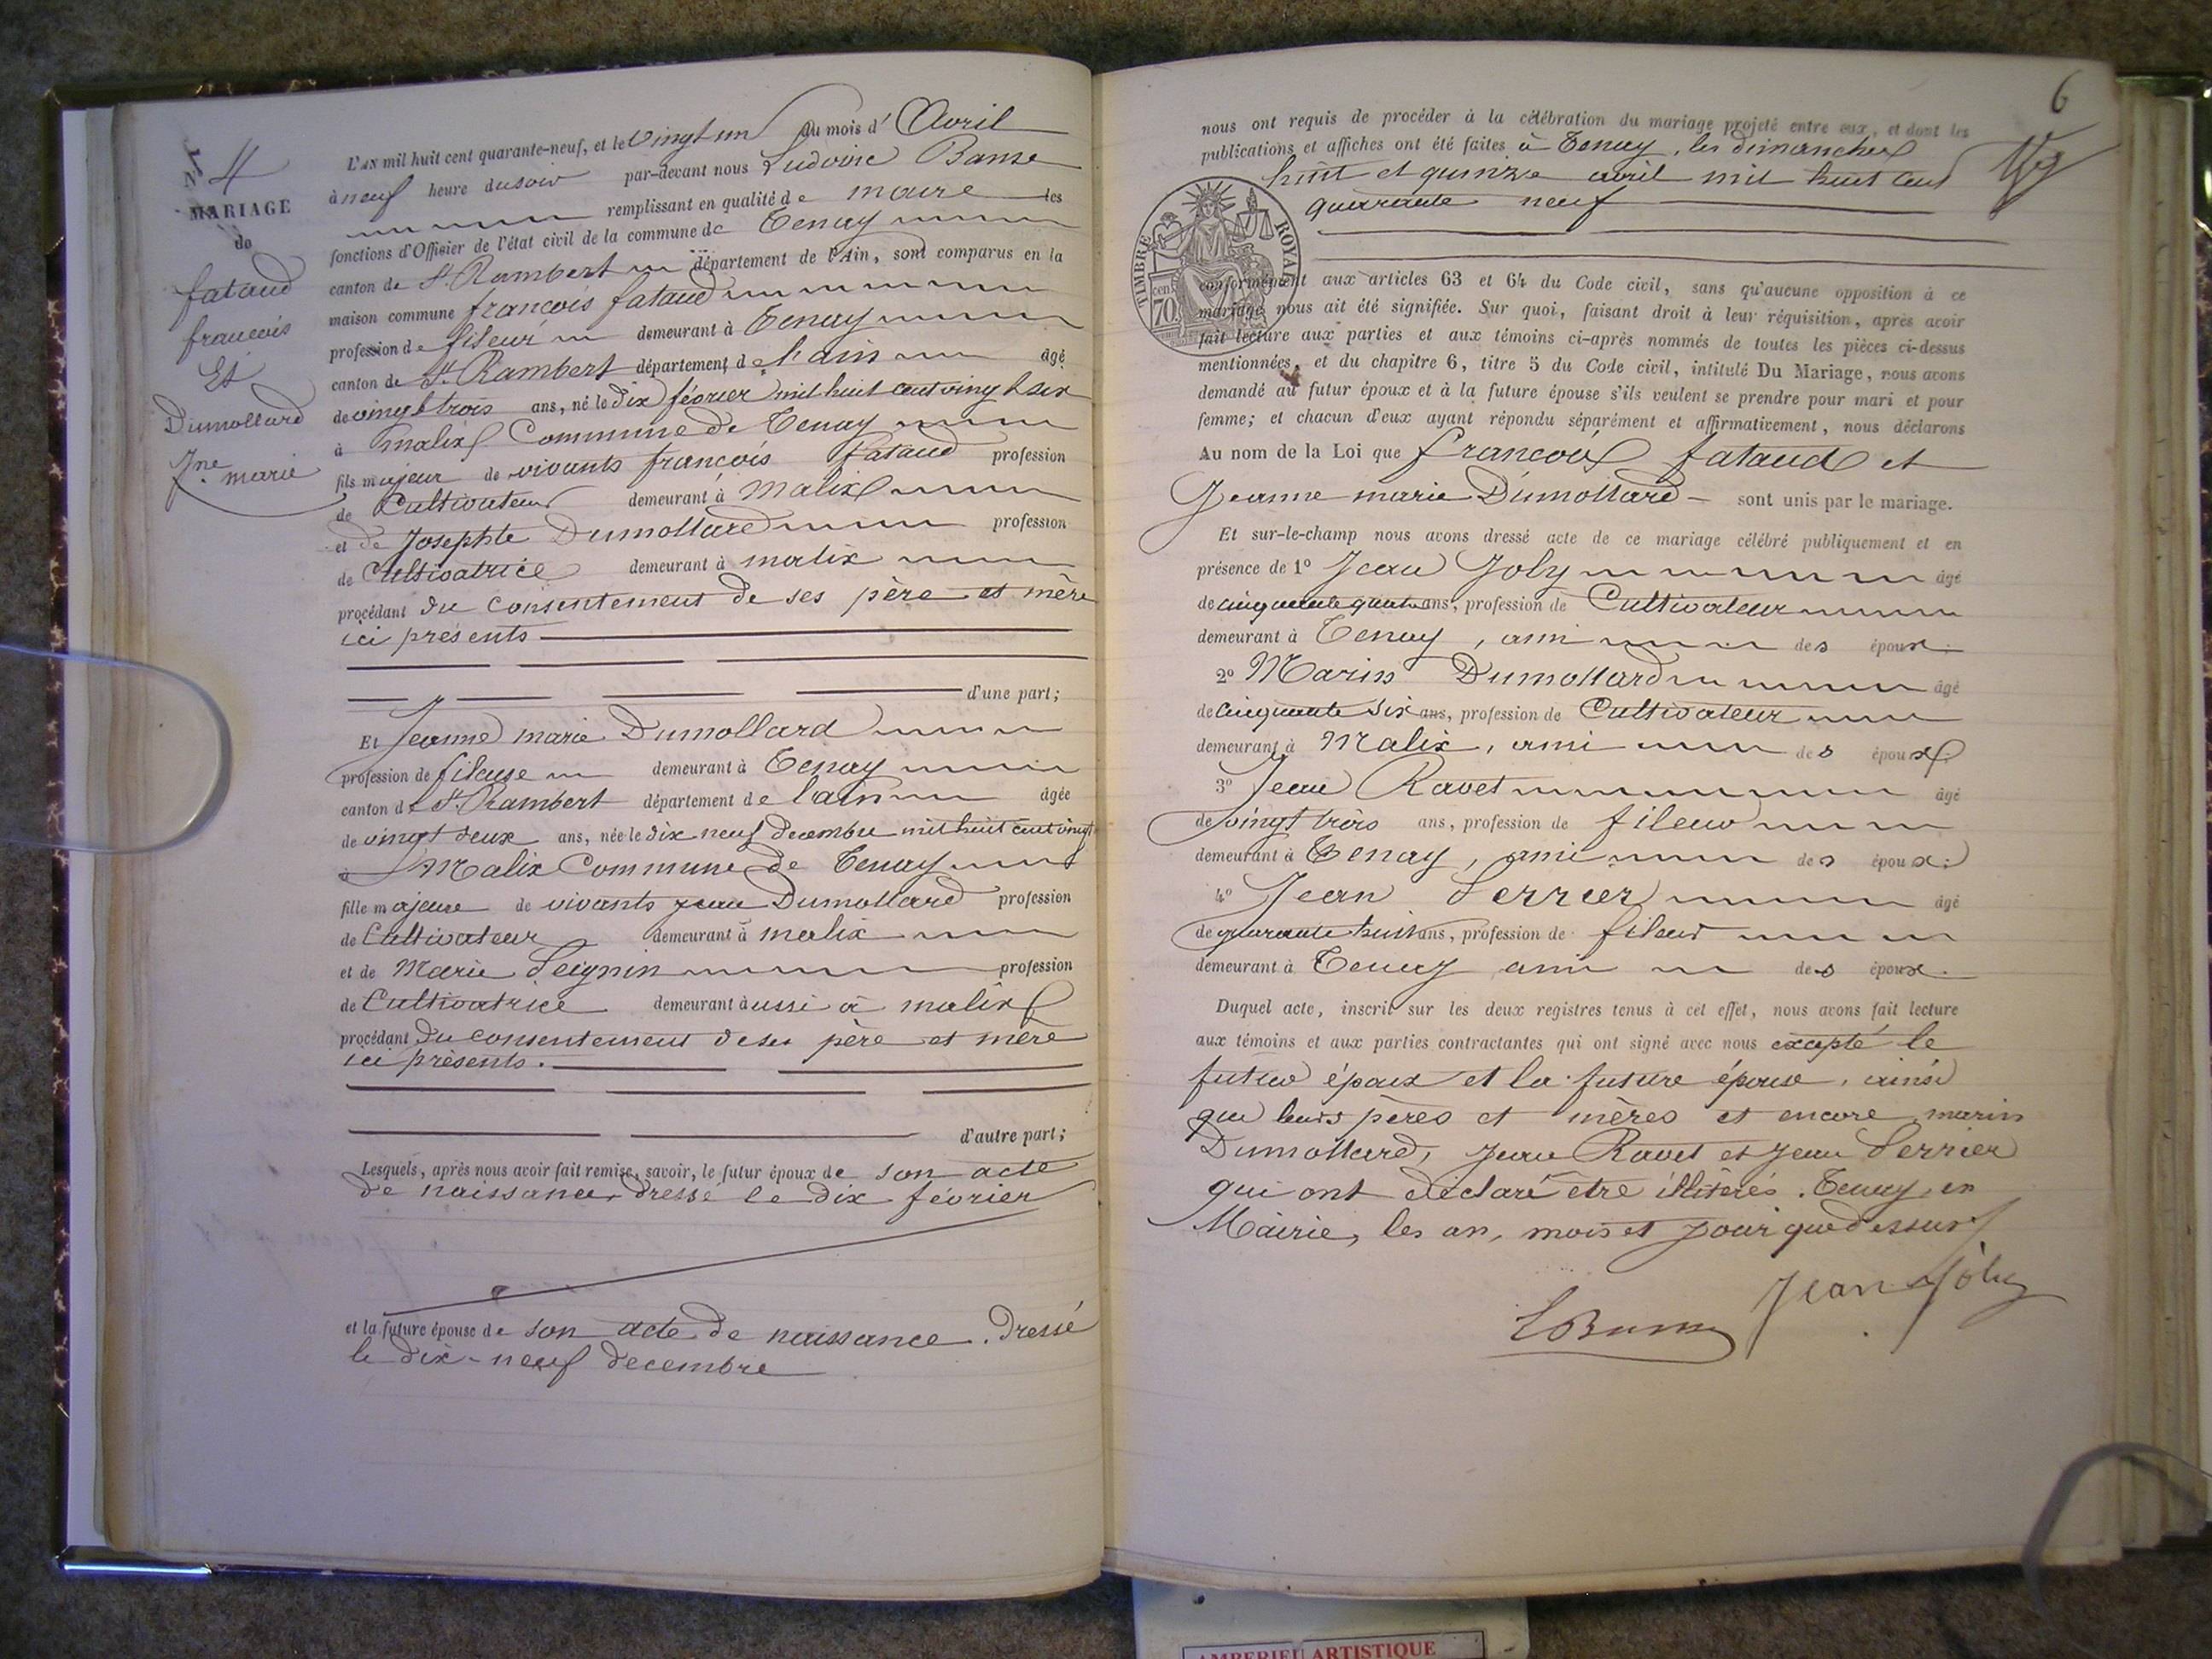 N° 4
MARIAGE
de
fataud
francois
Et
Dumollard
Jne marie
L'AN mil huit cent quarante-neuf, et le vingt un du mois d' Avril
à neuf heure du soir par-devant nous Ludovic
remplissant en qualité de maire les
fonctions d'Officier de l'état civil de la commune de Tenay
canton de St. Rambert département de l'Ain, sont comparus en la
maison commune francois fataud
profession de fileur demeurant à Tenay
canton de St. Rambert département de l'ain âgé
de vingt trois ans, né le dix février mil huit cent vingt six
à malix Commune de Tenay
fils majeur de vivants francois fataud profession
de Cultivateur demeurant à Malix
et de Josephte Dumollard profession
de Cultivatrice demeurant à malix
procédant du consentement de ses père et mère
ici présents
d'une part;
Et Jeanne marie Dumollard
profession de fileuse demeurant à Tenay
canton de St. Rambert département de l'ain âgée
de vingt deux ans, née le dix neuf decembre mil huit cent vingt
à Malix Commune de Tenay
fille majeure de vivants jean Dumollard profession
de Cultivateur demeurant à malix
et de Marie Seignin profession
de Cultivatrice demeurant aussi à malix
procédant du consentement de ses père et mère
ici présents.
d'autre part;
Lesquels, après nous avoir fait remise, savoir, le futur époux de son acte
de naissance dressé le dix février
et la future épouse de son acte de naissance. dressé
le dix-neuf decembre
6
nous ont requis de procéder à la célébration du mariage projeté entre eux, et dont les
publications et affiches ont été faites à Tenay, les dimanches
huit et quinze avril mil huit cent
quarante neuf
TIMBRE ROYAL
70 cent
conformément aux articles 63 et 64 du Code civil, sans qu'aucune opposition à ce
mariage nous ait été signifiée. Sur quoi, faisant droit à leur réquisition, après avoir
fait lecture aux parties et aux témoins ci-après nommés de toutes les pièces ci-dessus
mentionnées, et du chapitre 6, titre 5 du Code civil, intitulé Du Mariage, nous avons
demandé au futur époux et à la future épouse s'ils veulent se prendre pour mari et pour
femme; et chacun d'eux ayant répondu séparément et affirmativement, nous déclarons
Au nom de la Loi que francois fataud et
Jeanne marie Dumollard sont unis par le mariage.
Et sur-le-champ nous avons dressé acte de ce mariage célébré publiquement et en
présence de 1° Jean Joly âgé
de cinquante quatre ans, profession de Cultivateur
demeurant à Tenay, ami des époux.
2° Marin Dumollard âgé
de cinquante six ans, profession de Cultivateur
demeurant à Malix, ami des époux
3° Jean Ravet âgé
de vingt trois ans, profession de fileur
demeurant à Tenay, ami des époux.
4° Jean Perrier âgé
de quarante huit ans, profession de fileur
demeurant à Tenay ami des époux.
Duquel acte, inscrit sur les deux registres tenus à cet effet, nous avons fait lecture
aux témoins et aux parties contractantes qui ont signé avec nous excepté le
futur époux et la future épouse, ainsi
que leurs pères et mères et encore marin
Dumollard, Jean Ravet et Jean Perrier
qui ont déclaré etre illitérés. Tenay en
Mairie, les an, mois et jour que dessus
Jean Joly
AMBERIEU ARTISTIQUE